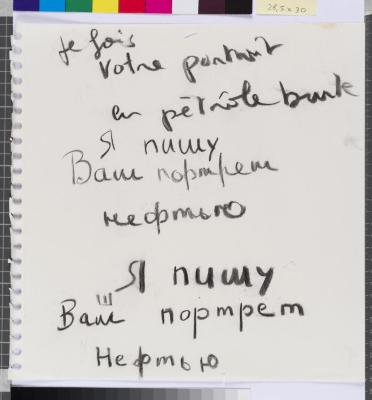 28,5 x 30
je fais
votre portrait
en pétrole brute
Я пишу
Ваш портрет
нефтью
Я пишу
Ваш портрет
Нефтью